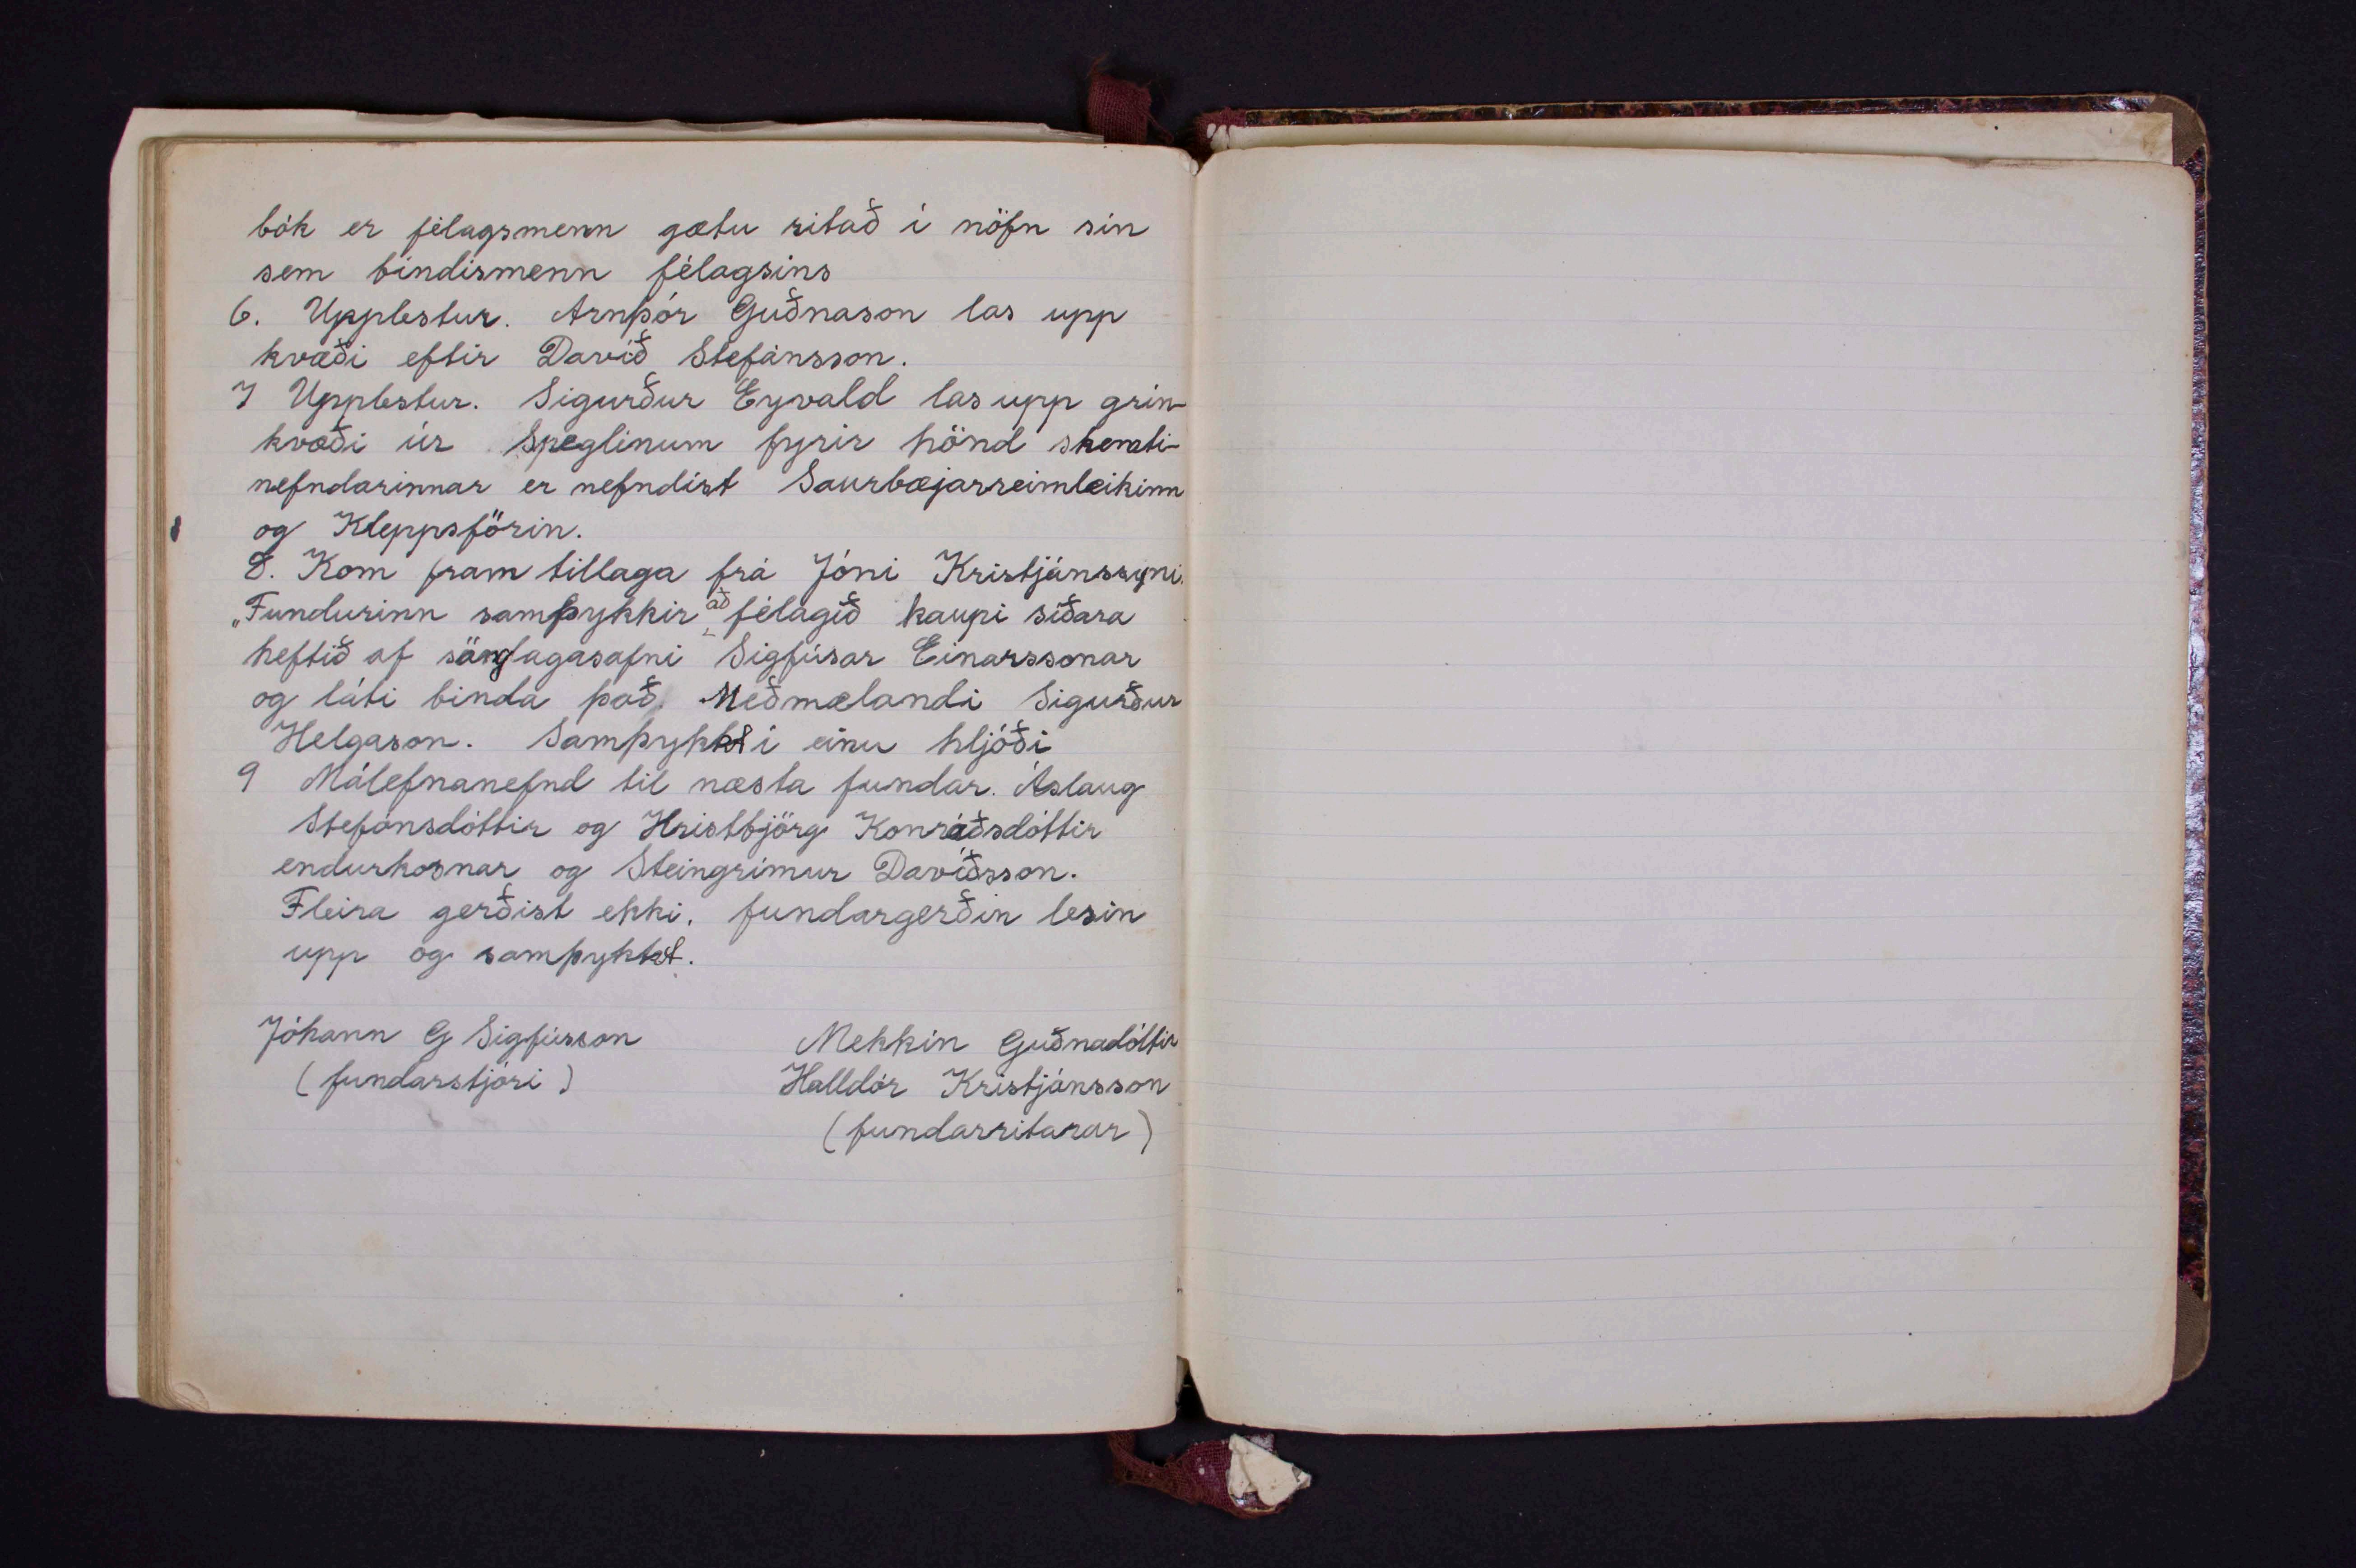 bók er félagsmenn gætu ritað í nöfn sín
sem bindismenn félagsins
6. Upplestur. Arnþór Guðnason las upp
kvæði eftir Davíð Stefánsson.
7 Upplestur. Sigurður Eyvald las upp grín-
kvæði úr Speglinum fyrir hönd skemti-
nefndarinnar er nefndist Saurbæjarreimleikinn
og Kleppsförin.
8. Kom fram tillaga frá Jóni Kristjánssyni.
„Fundurinn samþykkir að félagið kaupi síðara
heftið af sönglagasafni Sigfúsar Einarssonar
og láti binda það. Meðmælandi Sigurður
Helgason. Samþykkt í einu hljóði
9 Málefnanefnd til næsta fundar. Áslaug
Stefánsdóttir og Hristbjörg Konráðsdóttir
endurkosnar og Steingrímur Davíðsson.
Fleira gerðist ekki. fundargerðin lesin
upp og samþykkt.
Jóhann G Sigfússon
(fundarstjóri)
Mekkín Guðnadóttir
Halldór Kristjánsson
(fundarritarar)